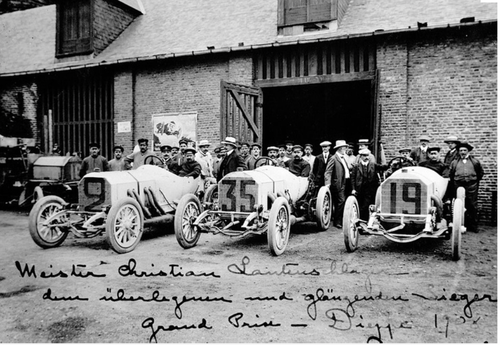 2 35 19
Meister Christian Lautenschlager
dem überlegenen und glänzenden Sieger
Grand Prise - Dieppe